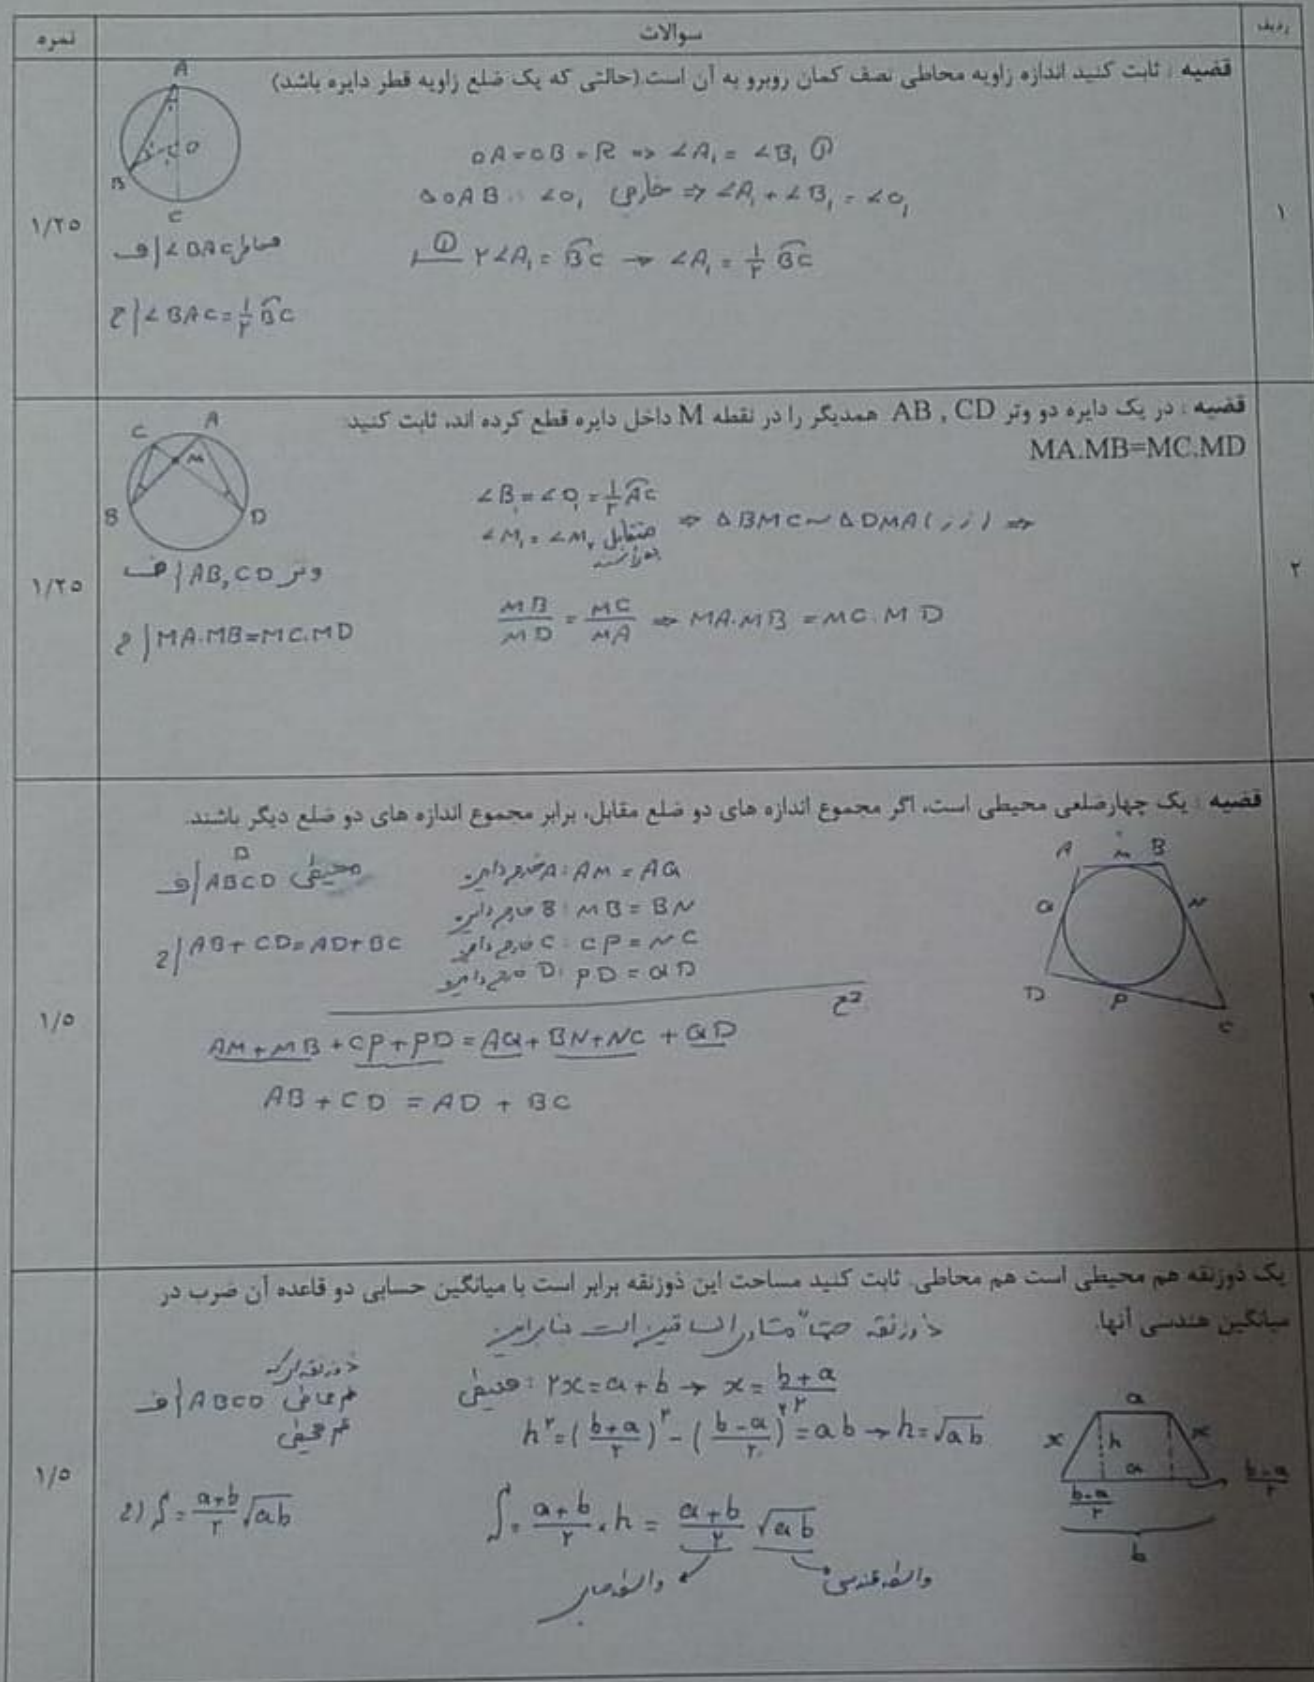 ردیف
سوالات
نمره
۱
قضیه : ثابت کنید اندازه زاویه محاطی نصف کمان روبرو به آن است.(حالتی که یک ضلع زاویه قطر دایره باشد)
۱/۲۵
A
O
B
C
OA=OB=R ⇒ ∠A₁=∠B₁ ①
△OAB: ∠O₁ خارجی ⇒ ∠A₁+∠B₁=∠O₁
① ۲∠A₁=B͡C → ∠A₁=۱/۲ B͡C
ف | ∠BAC محاطی
ح | ∠BAC=۱/۲ B͡C
۲
قضیه : در یک دایره دو وتر AB , CD همدیگر را در نقطه M داخل دایره قطع کرده اند، ثابت کنید:
MA.MB=MC.MD
۱/۲۵
C A
M
B D
∠B₁=∠D₁=۱/۲ A͡C
∠M₁=∠M₂ متقابل به رأس
⇒ △BMC~△DMA (ز ز) ⇒
MB/MD = MC/MA ⇒ MA.MB=MC.MD
ف | AB,CD وتر
ح | MA.MB=MC.MD
قضیه : یک چهارضلعی محیطی است، اگر مجموع اندازه های دو ضلع مقابل، برابر مجموع اندازه های دو ضلع دیگر باشند.
۱/۵
A M B
Q N
D P C
D
ف | ABCD محیطی
ح | AB+CD=AD+BC
A خارج دایره: AM=AQ
B خارج دایره: MB=BN
C خارج دایره: CP=NC
D خارج دایره: PD=QD
AM+MB+CP+PD=AQ+BN+NC+QD
AB+CD=AD+BC
یک ذوزنقه هم محیطی است هم محاطی. ثابت کنید مساحت این ذوزنقه برابر است با میانگین حسابی دو قاعده آن ضرب در
میانگین هندسی آنها.
۱/۵
ذوزنقه حتماً متساوی الساقین است بنابراین
محیطی: ۲x=a+b → x=(b+a)/۲
h²=((b+a)/۲)²-((b-a)/۲)²=ab → h=√ab
S=(a+b)/۲ . h = (a+b)/۲ √ab
واسطه هندسی
واسطه حسابی
ذوزنقه ای که
ف | ABCD هم محاطی
هم محیطی
ح | S=(a+b)/۲ √ab
a
x h x
a
(b-a)/۲ (b-a)/۲
b